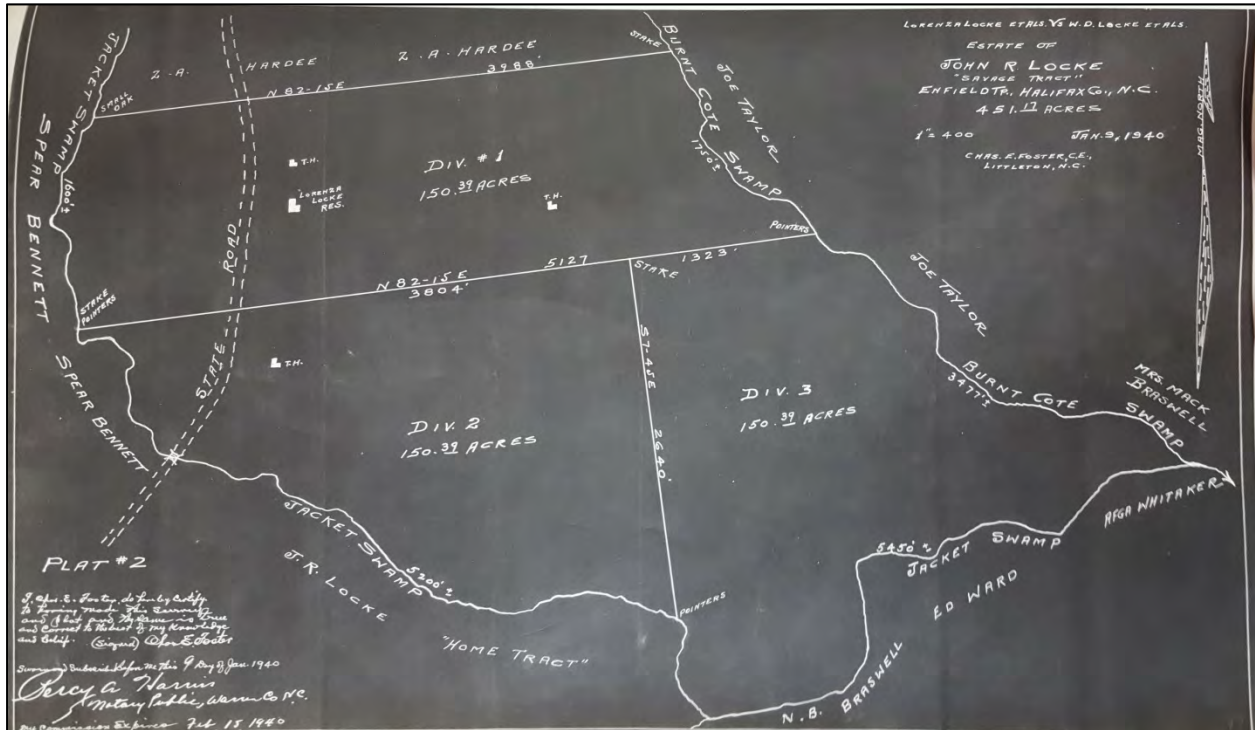 LORENZA LOCKE ET ALS. VS W. D. LOCKE ET ALS.
ESTATE OF
JOHN R LOCKE
"SAVAGE TRACT"
ENFIELD TP. HALIFAX CO., N.C.
451.17 ACRES
1"= 400
JAN. 9, 1940
CHAS. E. FOSTER, C.E.,
LITTLETON, N.C.
MAG. NORTH
JACKET SWAMP
1600'±
SPEAR BENNETT
Z. A. HARDEE
Z. A. HARDEE
SMALL OAK
N 82-15 E
3988'
STAKE
BURNT COTE SWAMP
1750'±
JOE TAYLOR
STATE ROAD
T.H.
LORENZA
LOCKE
RES.
DIV. #1
150.39 ACRES
T.H.
POINTERS
STAKE
POINTERS
N 82-15 E
3804'
5127
STAKE
1323'
JOE TAYLOR
SPEAR BENNETT
T.H.
DIV. 2
150.39 ACRES
S 7-45 E
2640'
DIV. 3
150.39 ACRES
BURNT COTE SWAMP
3477'±
MRS. MACK
BRASWELL
AFGA WHITAKER
JACKET SWAMP
5200'±
J. R. LOCKE
"HOME TRACT"
POINTERS
5450'±
JACKET SWAMP
ED WARD
N. B. BRASWELL
PLAT #2
I, Chas. E. Foster, do hereby Certify
to having made this Survey
and Plat and the same is true
and Correct to the best of my Knowledge
and Belif. (Signed) Chas E. Foster
Sworn and Subscribed before me this 9 Day of Jan. 1940
Percy A Harris
Notary Public, Warren Co N.C.
My Commission Expires Feb 15 1940